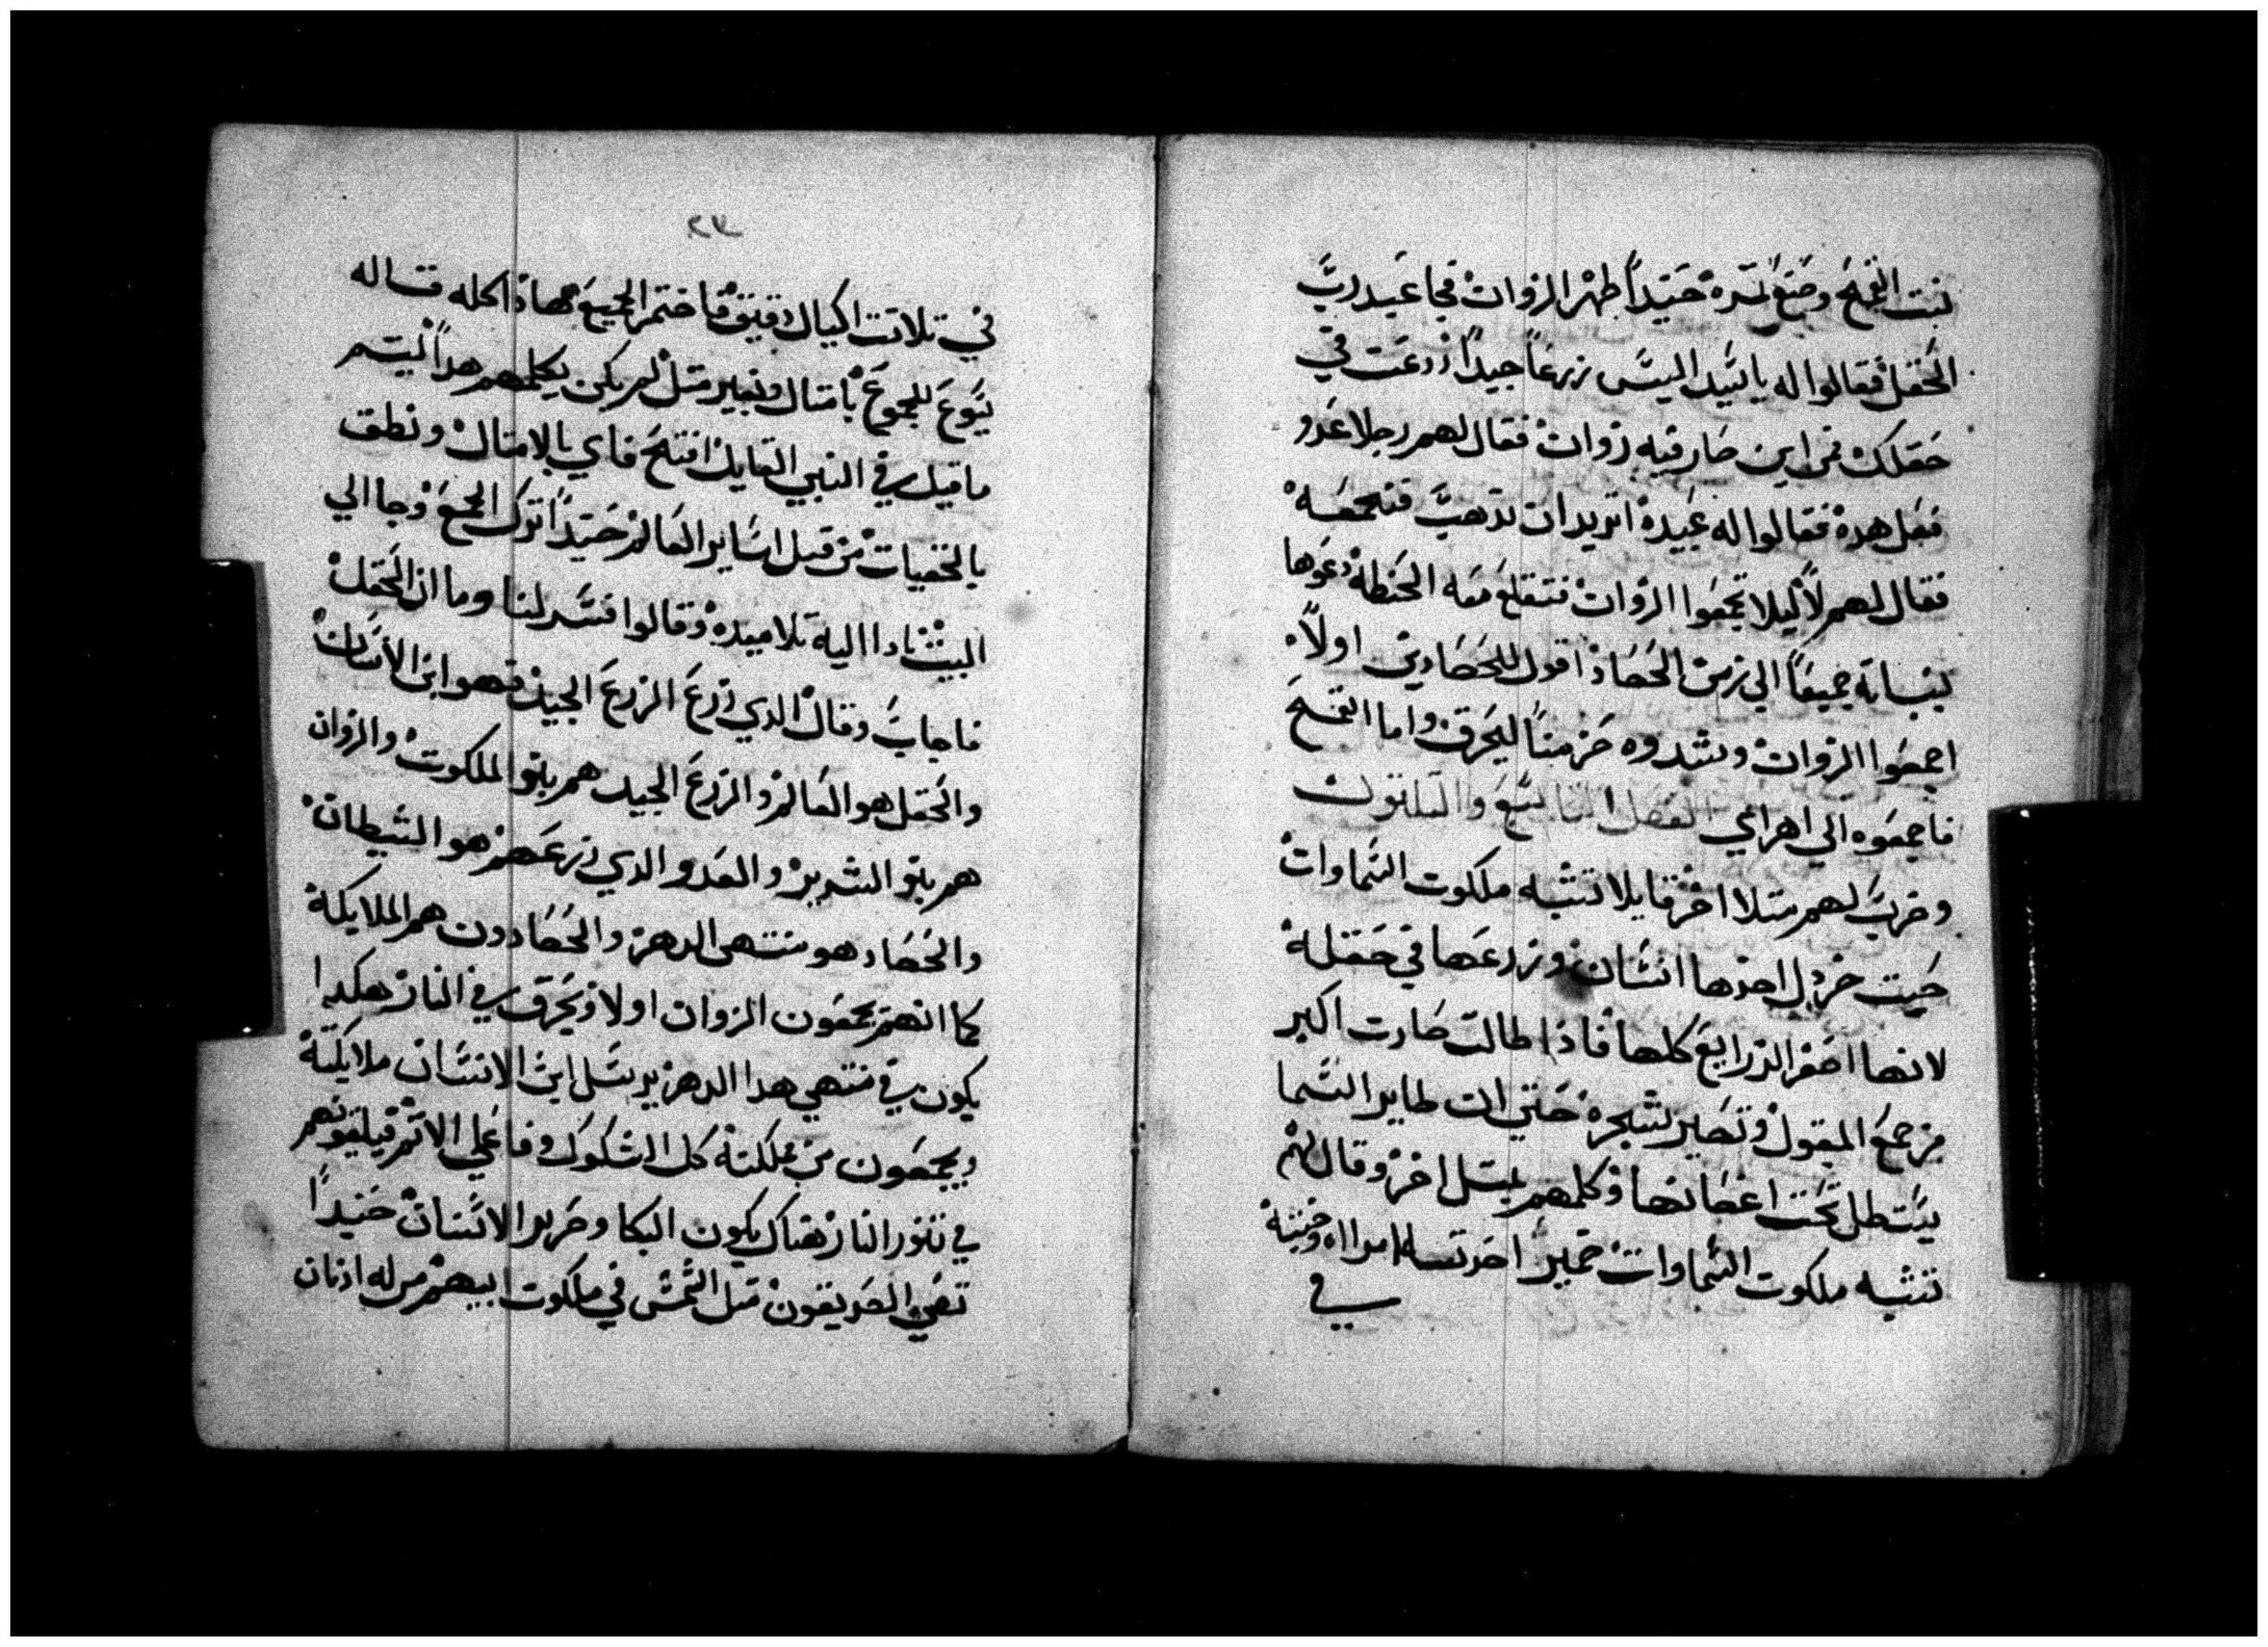 نبت القمح وصنع ثمره حينيداً ظهر الزوان فجا عبيد رب
الحقل فقالوا له يا سيد اليس زرعاً جيداً زرعت في
حقلك فمن اين صار فيه زوان فقال لهم رجلا عدو
فعل هده فقالوا له عبيده اتريد ان تدهب فنجمعه
فقال لهم لا ليلا تجمعوا الزوان فتقلع معه الحنطه دعوها
ينبتا جميعاً الي زمن الحصاد اقول للحصادين اولاً
اجمعوا الزوان وشدوه حزمناً ليحرق واما القمح
فاجمعوه الي اهراي الفصل التاسع والتلتون
وضرب لهم متلا اخر قايلا تشبه ملكوت السماوات
حبت خردل اخدها انسان وزرعها في حقله
لانها اصغر الزرايع كلها فاذا طالت صارت اكبر
من جمع البقول وتصير شجره حتي ان طاير السما
يستظل تحت اغصانها وكلمهم بمتل اخر وقال لهم
تشبه ملكوت السماوات خمير اخدته امراه وخبته
في
٢٧
في تلاتت اكيال دقيق فاختمر الجميع هاذا كله قاله
يسوع للجموع بامتال وبغير متل لم يكن يكلمهم هداً ليتم
ما قيل في النبي القايل افتح فاي بالامتال ونطق
بالخفيات من قبل اساير العالم حنيداً ترك الجمع وجا الي
البيت فادا اليه تلاميده وقالوا فسر لنا وما ان الحقل
فاجاب وقال الدي زرع الزرع الجيد فهو ابن الانسان
والحقل هو العالم والزرع الجيد هم بنو الملكوت والزوان
هم بنو الشرير والعدو الدي زرعهم هو الشيطان
والحصاد هو منتهى الدهر والحصادون هم الملايكة
كما انهم يجمعون الزوان اولا ويحرق في النار هكدا
يكون في منتهي هدا الدهر يرسل ابن الانسان ملايكته
ويجمعون من مملكته كل الشكوك وفاعلي الاتم فيلقونهم
في تنور النار هناك يكون البكا وصرير الاسنان حنيداً
تضي الصديقون متل الشمس في ملكوت ابيهم من له ادنان